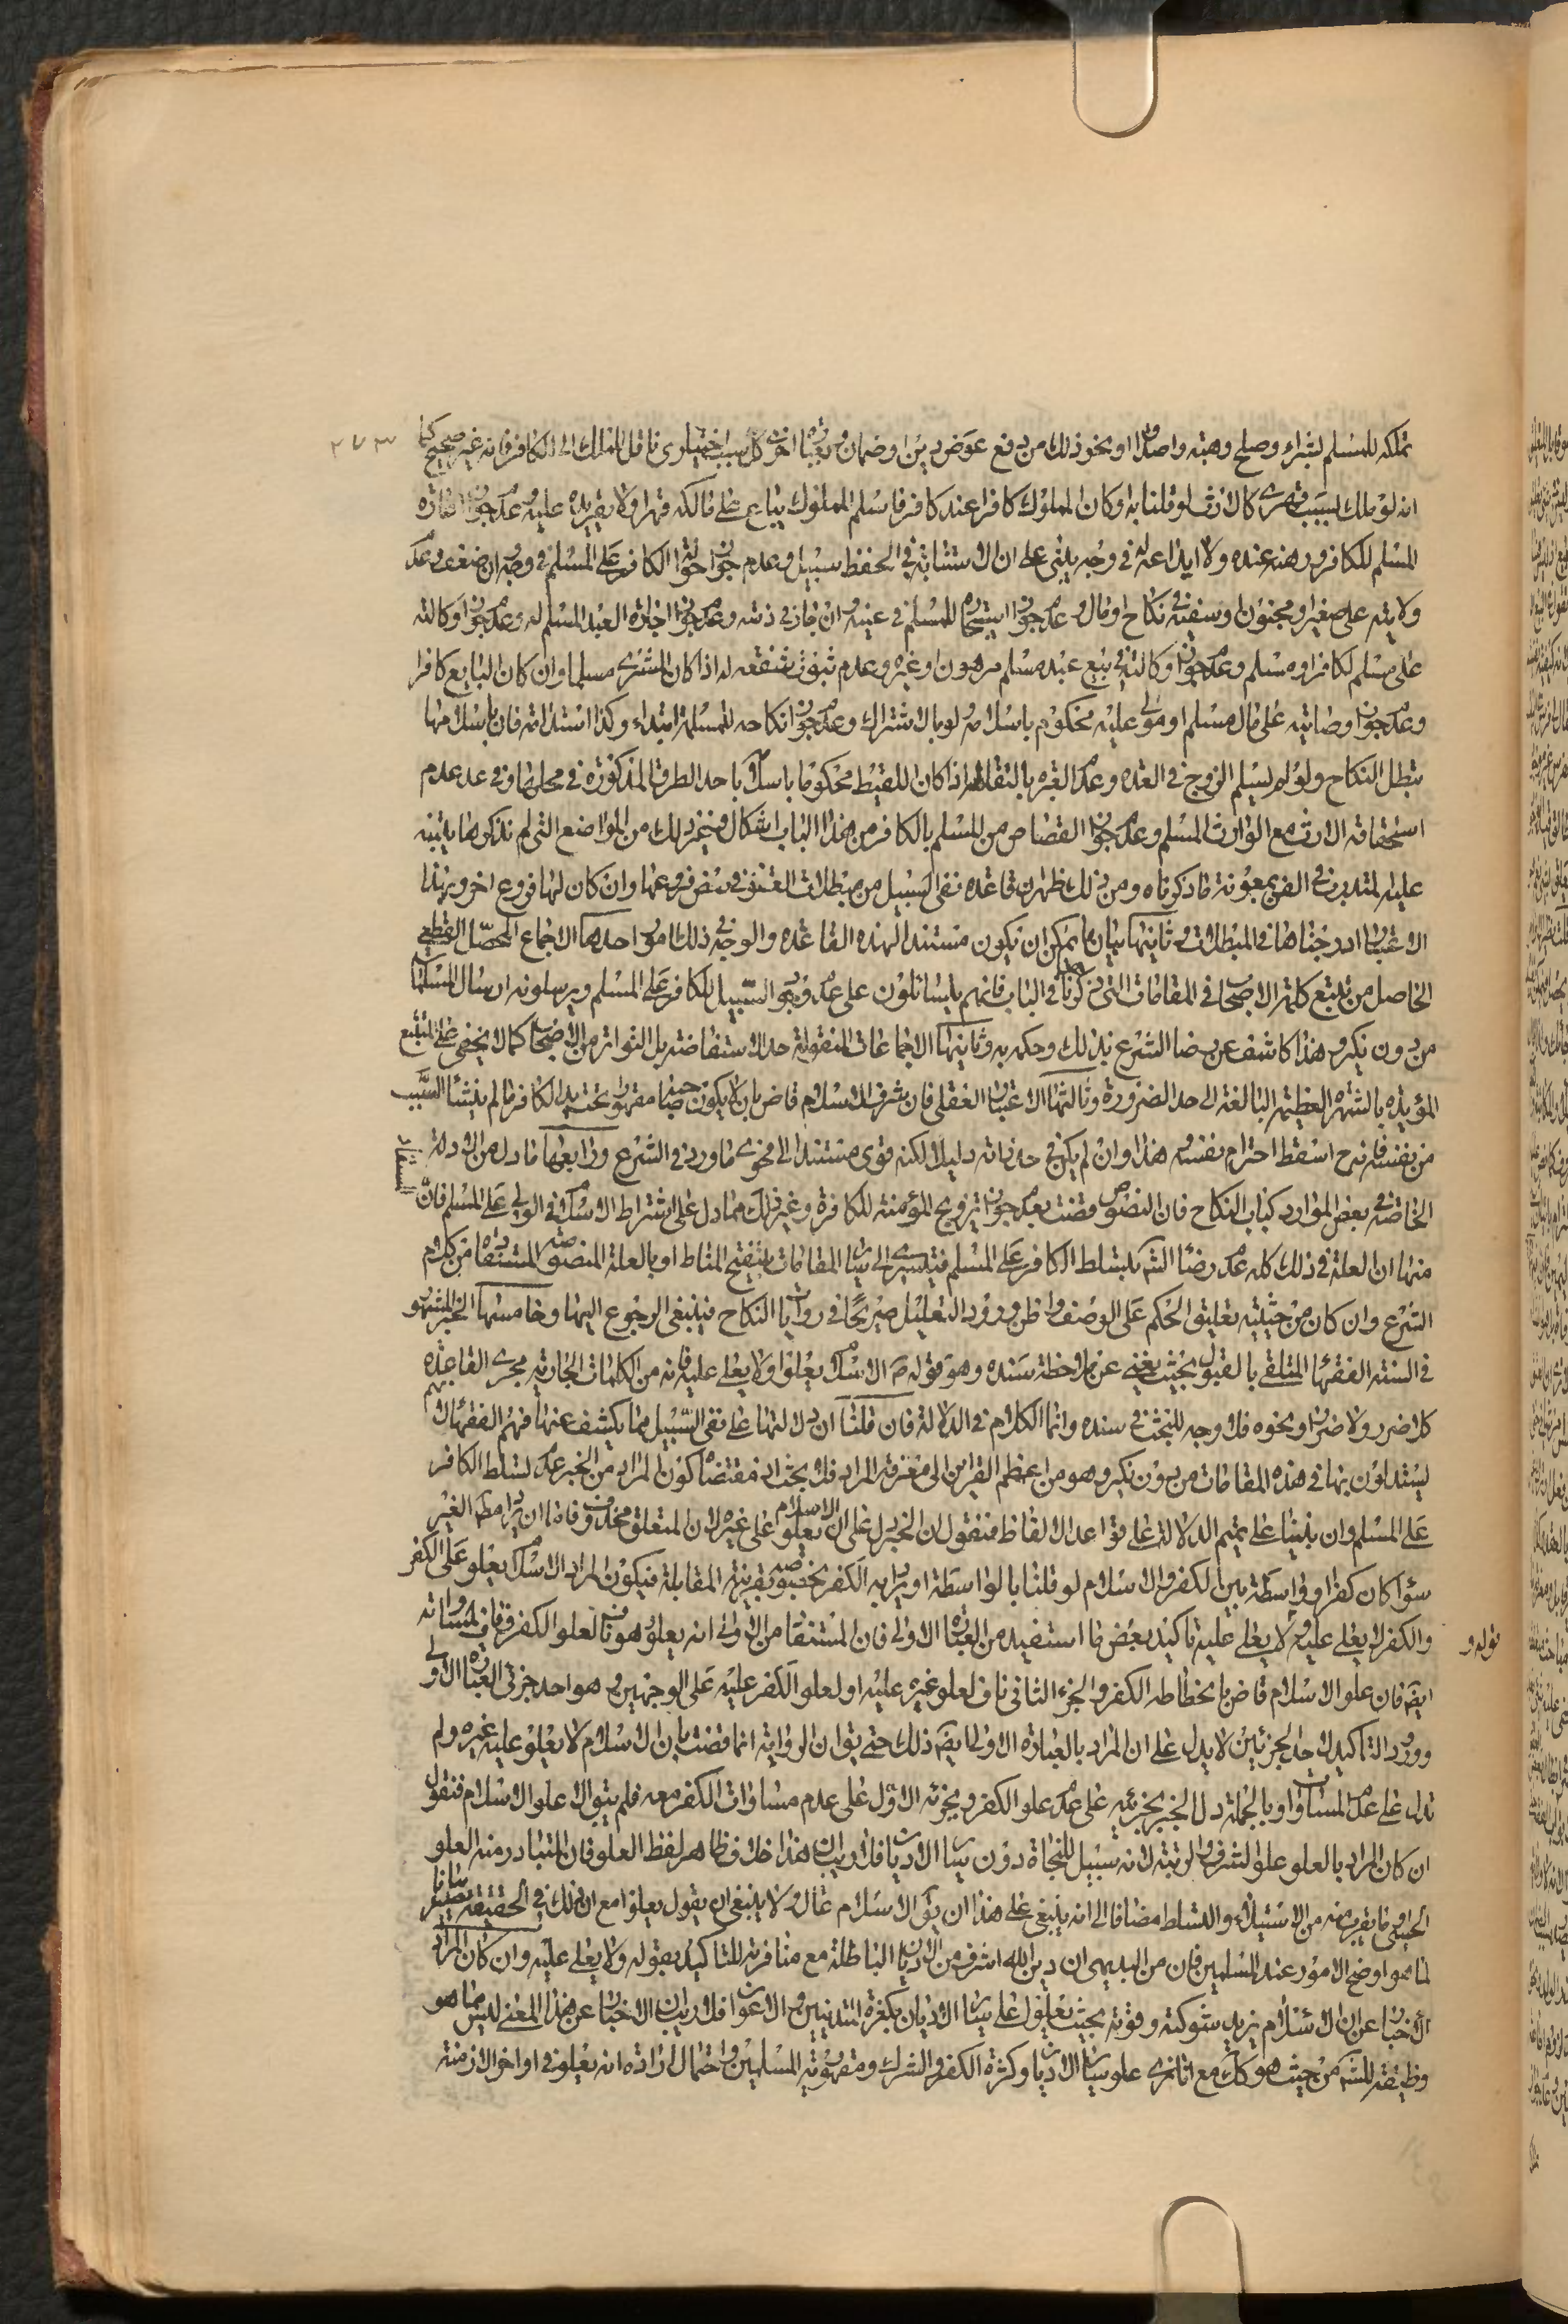 تملكه للمسلم بشراء وصلح وهبة واصداق ونحو ذلك من دفع عوض دين اوضمان وبعبارة اخرى كل سبب اختياري ناقل للملك الى الكافر فانه غير صحيح كما
انه لو ملك بسبب قهري كالارث لو قلنا به او كان المملوك كافرا عند كافر فاسلم المملوك يباع على مالكه قهرا ولا يقر يده عليه وعدم جواز اعارة
المسلم للكافر ورهنه عنده ولا ايداعه له في وجه يبتنى على ان الاستنابة في الحفظ سبيل وعدم جواز حوالة الكافر على المسلم في وجه ان ضعف وعدم
ولايته على صغير او مجنون او سفيه في نكاح او مال وعدم جواز استيجاره للمسلم في عينه وان جاز في ذمته وعدم جواز اجارة العبد المسلم له وعدم جواز وكالته
على مسلم لكافر او مسلم وعدم جواز وكالته في بيع عبد مسلم مرهون او غيره وعدم ثبوت شفعة له اذا كان المشتري مسلما وان كان البايع كافرا
وعدم جواز وصايته على مال مسلم او مولى عليه محكوم باسلامه ولو بالاشتراك وعدم جواز انكاحه للمسلمة ابتداء وكذا استدامة فان باسلامها
يبطل النكاح ولو لم يسلم الزوج في العدة وعدم العبرة بالتقاطه اذا كان اللقيط محكوما باسلامه باحد الطرق المذكورة في محلها وفي عد عدم
استحقاقه الارث مع الوارث المسلم وعدم جواز القصاص من المسلم بالكافر من هذا الباب اشكال وغير ذلك من المواضع التي لم نذكرها يتنبه
عليه المتدرب في الفن بمعونة ما ذكرناه ومن ذلك ظهر ان قاعدة نفى السبيل من مبطلات العقود في بعض فروعها وان كان لها فروع اخر وبهذا
الاعتبار ادرجناها في المبطلات وثانيها بيان ما يمكن ان يكون مستندا لهذه القاعدة والوجه في ذلك امور احدها الاجماع المحصل القطعي
الحاصل من تتبع كلمة الاصحاب في المقامات التي ذكرناها في الباب فانهم يتسالمون على عدم وجود السبيل للكافر على المسلم ويرسلونه ارسال المسلمات
من دون نكير وهذا كاشف عن رضا الشرع بذلك وحكمه به وثانيها الاجماعات المنقولة حد الاستفاضة بل التواتر من الاصحاب كما لا يخفى على المتتبع
المؤيدة بالشهرة العظيمة البالغة الى حد الضرورة وثالثها الاعتبار العقلي فان شرف الاسلام قاض بان لا يكون صاحبه مقهورا تحت يد الكافر ما لم ينشأ السبب
من نفسه فانه ح اسقط احترام نفسه وهذا وان لم يكن في حد ذاته دليلا لكنه قوي مستندا الى فحوى ما ورد في الشرع ورابعها ما دل من الادلة
الخاصة في بعض الموارد كباب النكاح فان النصوص قضت بعدم جواز تزويج المؤمنة للكافرة وغير ذلك مما دل على اشتراط الاسلام في الولي على المسلم فان
منها ان العلة في ذلك كله عدم رضا الشرع بتسلط الكافر على المسلم فيتسرى الى سائر المقامات بتنقيح المناط او بالعلة المنصوصة المستفادة من كلام
الشرع وان كان من حيثية تعليق الحكم على الوصف واظن ورود التعليل صريحا في روايات النكاح فينبغي الرجوع اليها وخامسها الخبر المشهور
في السنة الفقهاء المتلقى بالقبول بحيث يغني عن ملاحظة سنده وهو قوله ص الاسلام يعلو ولا يعلى عليه فانه من الكلمات الجارية مجرى القاعدة
كلا ضرر ولا ضرار ونحوه فلا وجه للبحث في سنده وانما الكلام في الدلالة فان قلنا ان دلالتها على نفى السبيل مما يكشف عنها فهم الفقهاء لانهم
يستدلون بها في هذه المقامات من دون نكير وهو من اعظم القراين الى معرفة المراد فلا بحث اذ مقتضاه كون المراد من الخبر عدم تسلط الكافر
على المسلم وان بنينا على تتميم الدلالة على قواعد الالفاظ فنقول ان الخبر دل على ان الاسلام يعلو على غيره لان المتعلق محذوف فاما ان يراد مطلق الغير
سواء كان كفرا او واسطة بين الكفر والاسلام لو قلنا بالواسطة او يراد به الكفر بخصوصه بقرينة المقابلة فيكون المراد الاسلام يعلو على الكفر
والكفر لا يعلى عليه وقوله ولا يعلى عليه تاكيد بعض ما استفيد من العبارة الاولى فان المستفاد من الاولى انه يعلو وهو ناف لعلو الكفر وناف لمساواته
ايضا فان علو الاسلام قاض بانحطاط الكفر والجزء الثاني ناف لعلو غيره عليه او لعلو الكفر عليه على الوجهين وهو احد جزئي العبارة الاولى
وورود التاكيد لاحد الجزئين لا يدل على ان المراد بالعبارة الاولى ايضا ذلك حتى يقال ان الرواية انما قضت بان الاسلام لا يعلو عليه غيره ولم
تدل على عدم المساواة وبالجملة دل الخبر بجزئيه على عدم علو الكفر وبجزئه الاول على عدم مساوات الكفر معه فلم يبق الا علو الاسلام فنقول
ان كان المراد بالعلو علو الشرف والرتبة لانه سبيل للنجاة دون سائر الاديان فلا ريب ان هذا خلاف ظاهر لفظ العلو فان المتبادر منه العلو
الحسي وما يقرب منه من الاستيلاء والتسلط مضافا الى انه ينبغي على هذا ان يقال الاسلام عال ولا ينبغي ان يقول يعلو مع ان ذلك في الحقيقة يصير بيانا
لما هو اوضح الامور عند المسلمين فان من البديهي ان دين الله اشرف من الاديان الباطلة مع منافرته للتاكيد بقوله ولا يعلى عليه وان كان المراد
الاخبار عن ان الاسلام يزيد شوكته وقوته بحيث يعلو على سائر الاديان بكثرة المتدينين والاعوان فلا ريب ان الاخبار عن هذا المعنى ليس مما هو
وظيفة للشرع من حيث هو كك مع انا نرى علو سائر الاديان وكثرة الكفر والشرك ومقهورية المسلمين واحتمال ارادة انه يعلو في اواخر الازمنة
قوله و
٣٧٣